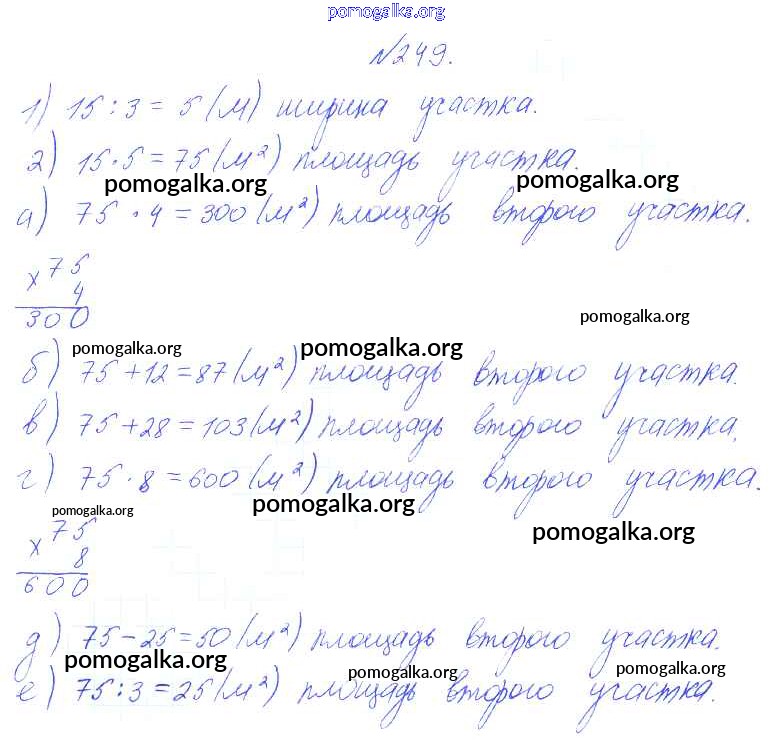 pomogalka.org
№249.
1) 15:3=5(м) ширина участка.
2) 15·5=75(м²) площадь участка.
pomogalka.org pomogalka.org
а) 75·4=300(м²) площадь второго участка.
×75
4
300
pomogalka.org
pomogalka.org pomogalka.org
б) 75+12=87(м²) площадь второго участка.
в) 75+28=103(м²) площадь второго участка.
г) 75·8=600(м²) площадь второго участка.
pomogalka.org pomogalka.org pomogalka.org
×75
8
600
д) 75-25=50(м²) площадь второго участка.
pomogalka.org pomogalka.org pomogalka.org
е) 75:3=25(м²) площадь второго участка.